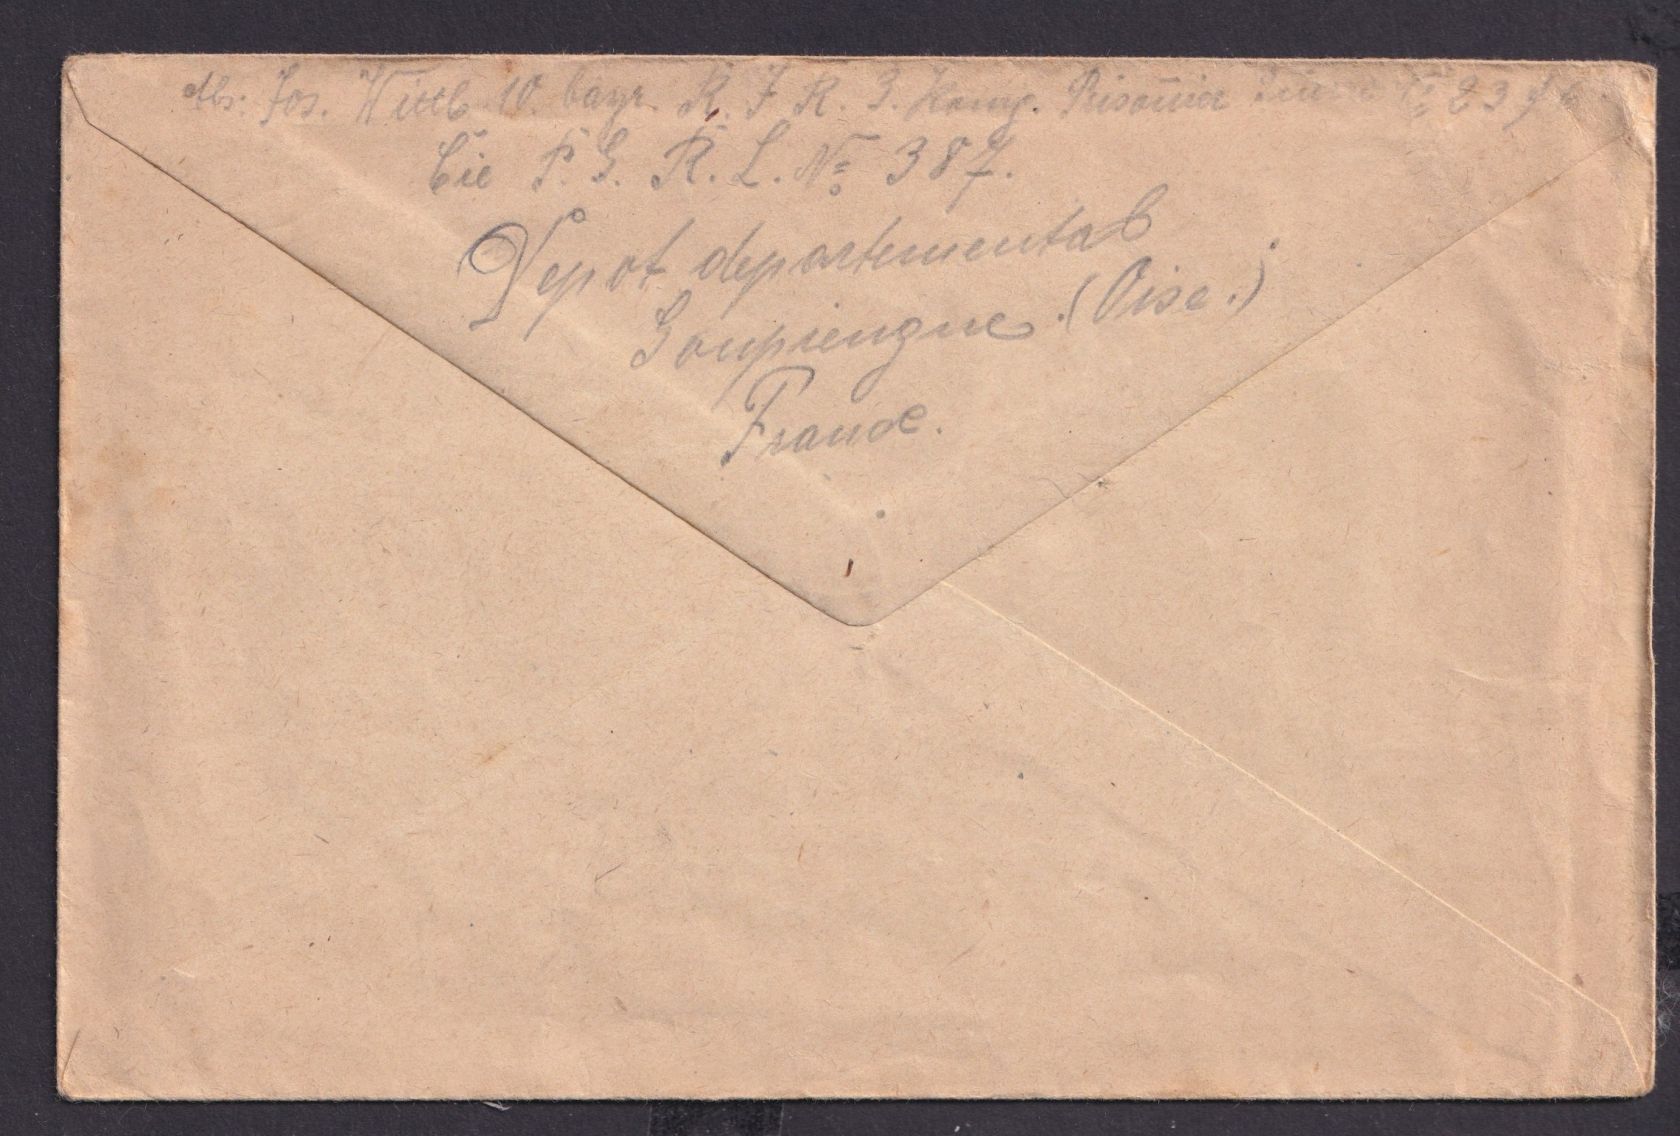 Abs: Jos. Wittl 10. bayr. R. I R. 3. Komp. Prisonnier
Cie P. G. R. L. No 387.
Depot departemental
Compiengne (Oise.)
France.